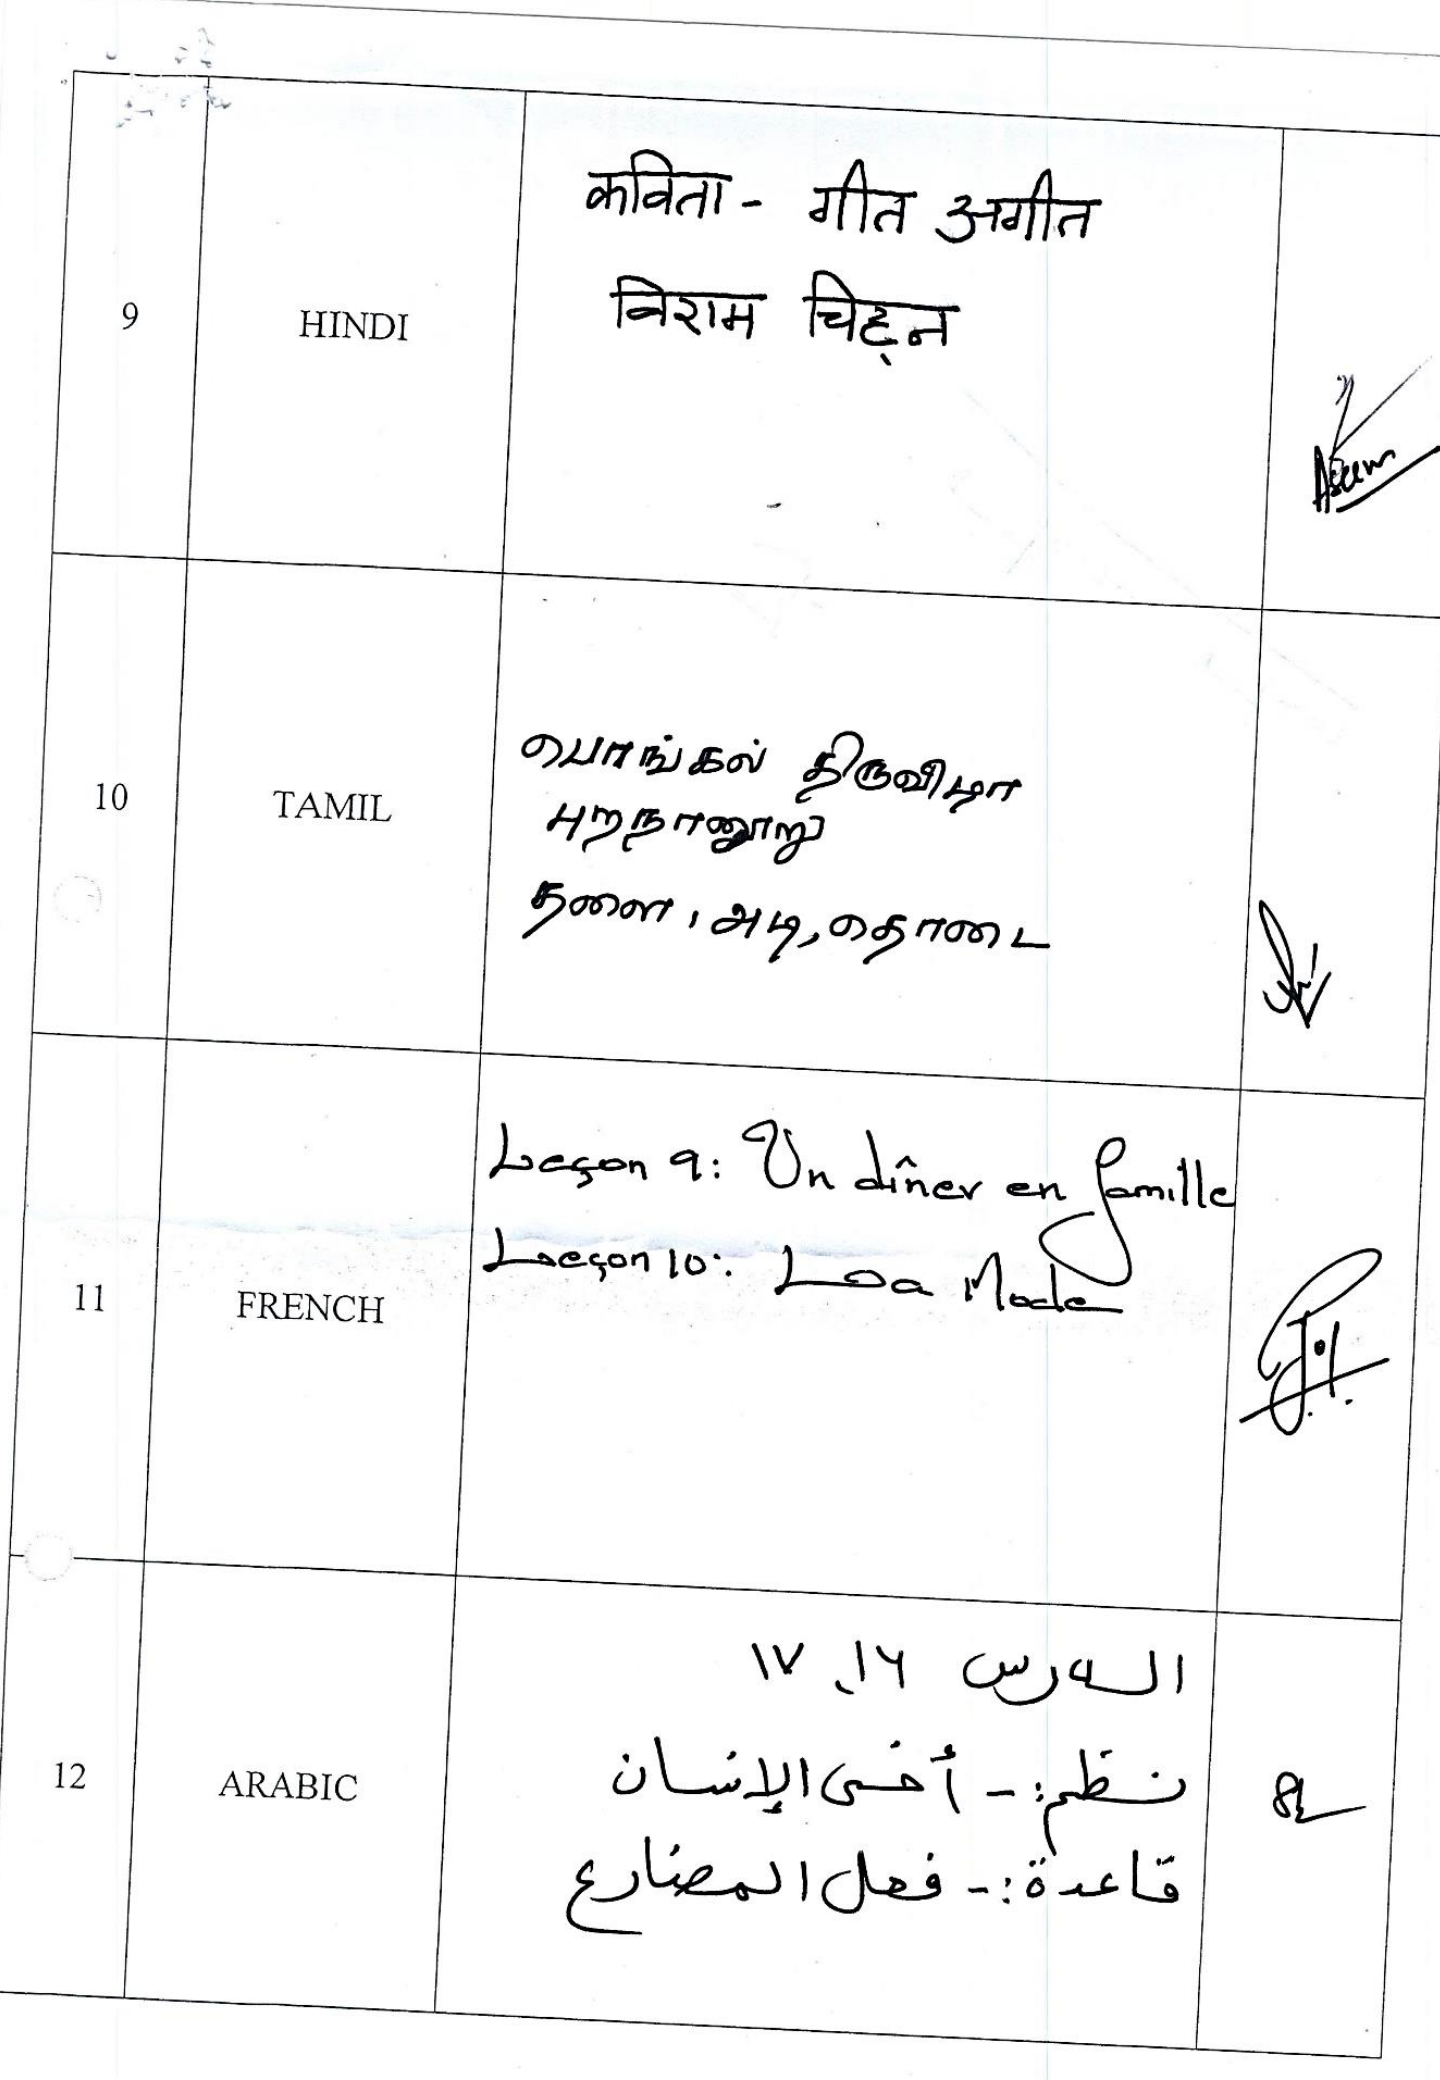 9
HINDI
कविता - गीत अगीत
विराम चिह्न
10
TAMIL
பொங்கல் திருவிழா
புறநானூறு
தளை, அடி, தொடை
11
FRENCH
Leçon 9: Un dîner en famille
Leçon 10: La Mode
12
ARABIC
الدرس ١٦، ١٧
نظم:- أخى الإنسان
قاعدة:- فعل المضارع